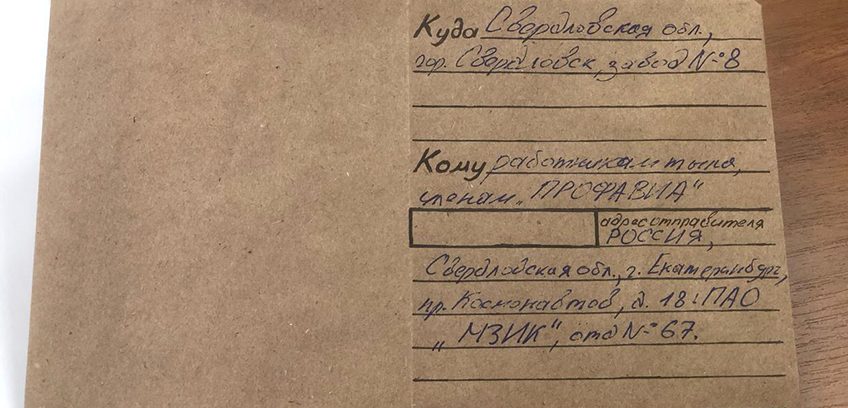 Куда Свердловская обл.,
гор. Свердловск, завод №8
Кому работникам тыла,
членам „ПРОФАВИА"
адрес отправителя
РОССИЯ,
Свердловская обл., г. Екатеринбург,
пр. Космонавтов, д. 18: ПАО
„МЗИК", отд №67.